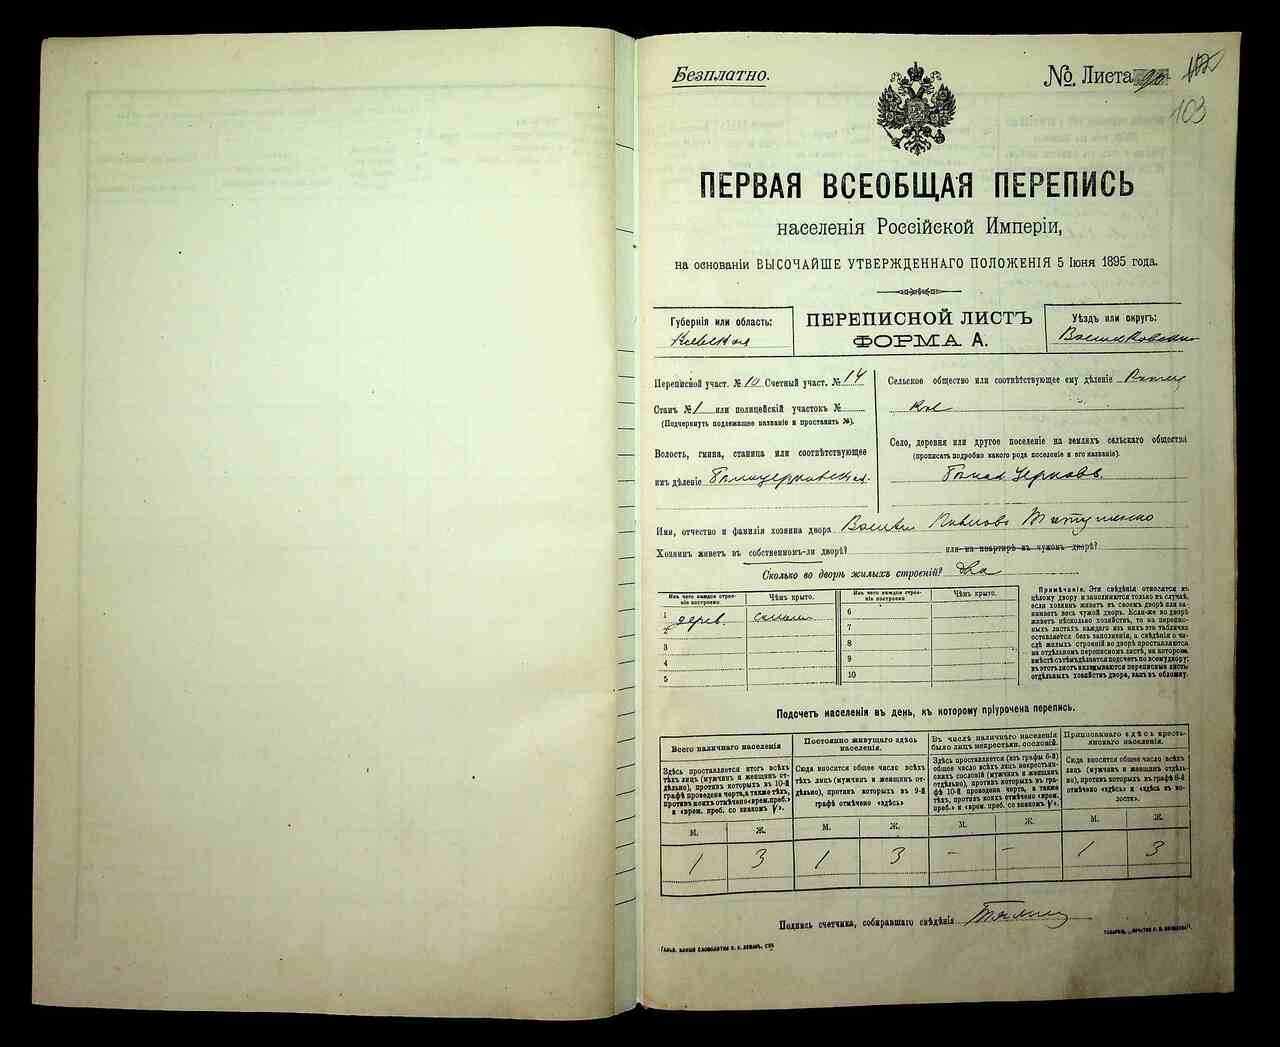 Безплатно.
№ Листа 90
103
ПЕРВАЯ ВСЕОБЩАЯ ПЕРЕПИСЬ
населенія Россійской Имперіи,
на основаніи ВЫСОЧАЙШЕ УТВЕРЖДЕННАГО ПОЛОЖЕНІЯ 5 Іюня 1895 года.
Губернія или область:
Кіевская
ПЕРЕПИСНОЙ ЛИСТЪ
ФОРМА А.
Уѣздъ или округъ:
Васильковскій
Переписной участ. № 10 Счетный участ. № 14
Станъ № 1 или полицейскій участокъ №
(Подчеркнуть подлежащее названіе и проставить №).
Волость, гмина, станица или соотвѣтствующее
имъ дѣленіе Бѣлоцерковская.
Сельское общество или соотвѣтствующее ему дѣленіе
Село, деревня или другое поселеніе на земляхъ сельскаго общества
(прописать подробно какого рода поселеніе и его названіе).
Бѣлая Церковь.
Имя, отчество и фамилія хозяина двора Василій Павловъ
Хозяинъ живетъ въ собственномъ-ли дворѣ? или на квартирѣ въ чужомъ дворѣ?
Сколько во дворѣ жилыхъ строеній? два
Изъ чего каждое строеніе построено
Чѣмъ крыто.
Изъ чего каждое строеніе построено
Чѣмъ крыто.
1 дерев. солом.
2
3
4
5
6
7
8
9
10
Примѣчаніе. Эти свѣдѣнія относятся къ
цѣлому двору и заполняются только въ случаѣ,
если хозяинъ живетъ въ своемъ дворѣ или занимаетъ
весь чужой дворъ. Если-же во дворѣ
живетъ нѣсколько хозяйствъ, то на переписныхъ
листахъ каждаго изъ нихъ эта табличка
оставляется безъ заполненія, а свѣдѣнія о числѣ
жилыхъ строеній во дворѣ проставляются
на отдѣльномъ переписномъ листѣ, на которомъ
вмѣстѣ съ тѣмъ дѣлается подсчетъ по всему двору;
въ этотъ листъ вкладываются переписные листы
отдѣльныхъ хозяйствъ двора, какъ въ обложку.
Подсчетъ населенія въ день, къ которому пріурочена перепись.
Всего наличнаго населенія
Здѣсь проставляется итогъ всѣхъ
тѣхъ лицъ (мужчинъ и женщинъ отдѣльно),
противъ которыхъ въ 10-й
графѣ проведена черта, а также тѣхъ,
противъ коихъ отмѣчено «врем. преб.»
и «врем. преб. со знакомъ V».
Постоянно живущаго здѣсь
населенія.
Сюда вносится общее число всѣхъ
тѣхъ лицъ (мужчинъ и женщинъ отдѣльно),
противъ которыхъ въ 9-й
графѣ отмѣчено «здѣсь»
Въ числѣ наличнаго населенія
было лицъ некрестьян. сословій.
Здѣсь проставляется (изъ графы 6-й)
общее число всѣхъ лицъ некрестьянскихъ
сословій (мужчинъ и женщинъ
отдѣльно), противъ которыхъ въ графѣ
10-й проведена черта, а также
тѣхъ, противъ коихъ отмѣчено «врем.
преб.» и «врем. преб. со знакомъ V».
Приписаннаго здѣсь крестьянскаго
населенія.
Сюда вносится общее число всѣхъ
лицъ (мужчинъ и женщинъ отдѣльно),
противъ которыхъ въ графѣ 8-й
отмѣчено «здѣсь» и «здѣсь въ волости».
М. Ж. М. Ж. М. Ж. М. Ж.
1 3 1 3 – – 1 3
Подпись счетчика, собиравшаго свѣдѣнія